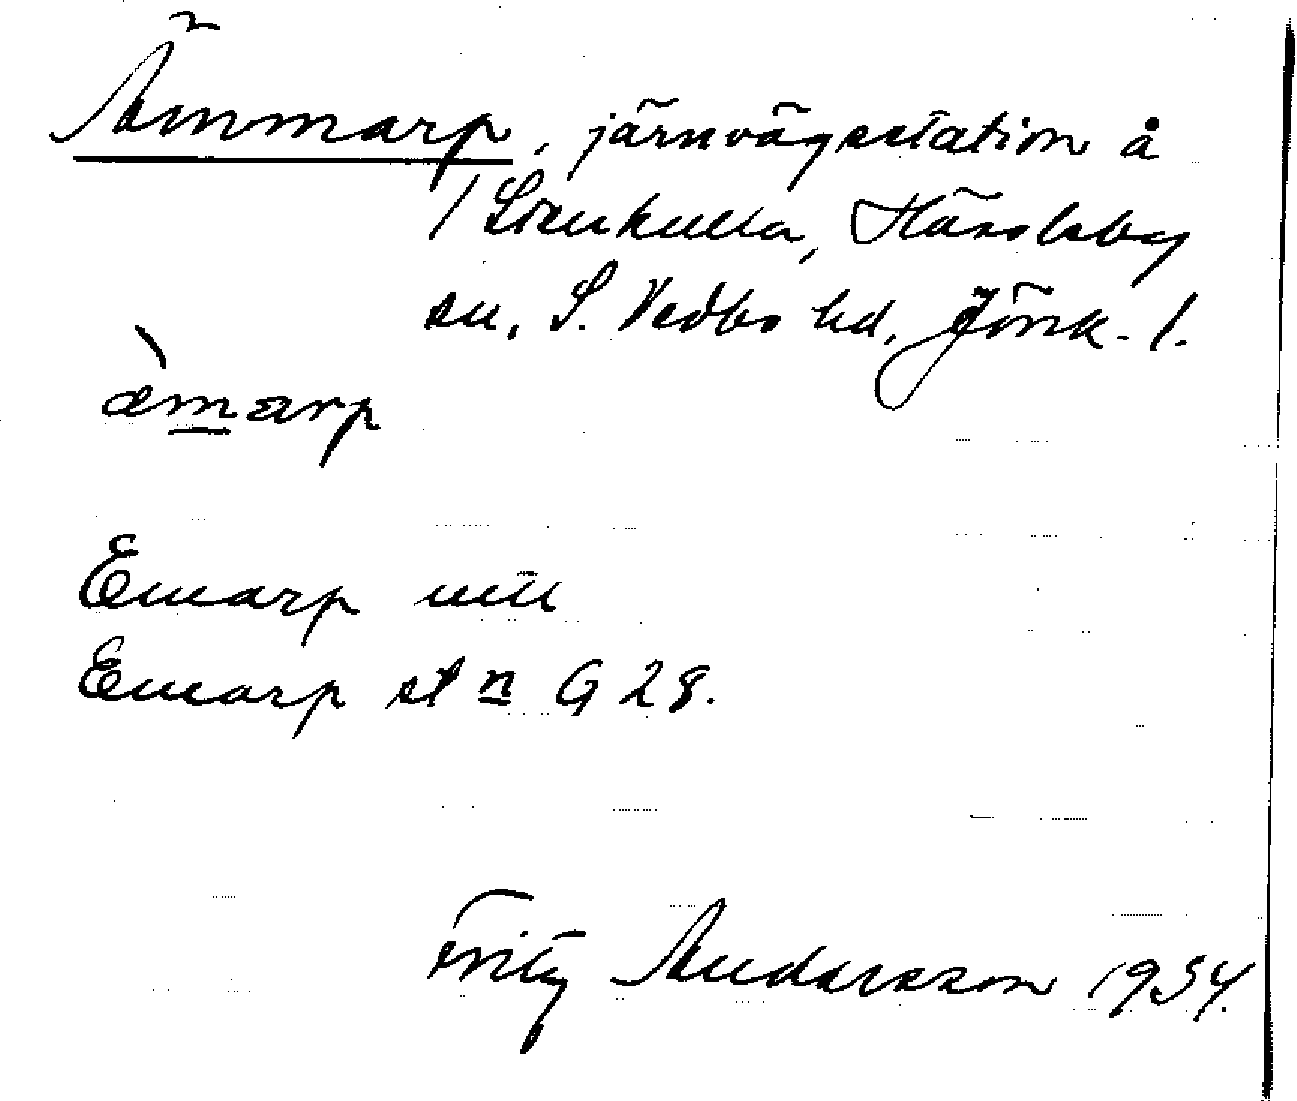 Ämmarp, järnvägsstation å
/ Stenkulla, Hässleby
sn, S. Vedbo hd, Jönk. l.
æmarp
Emarp mtl
Emarp st n G 28.
Fritz Andersson 1934.